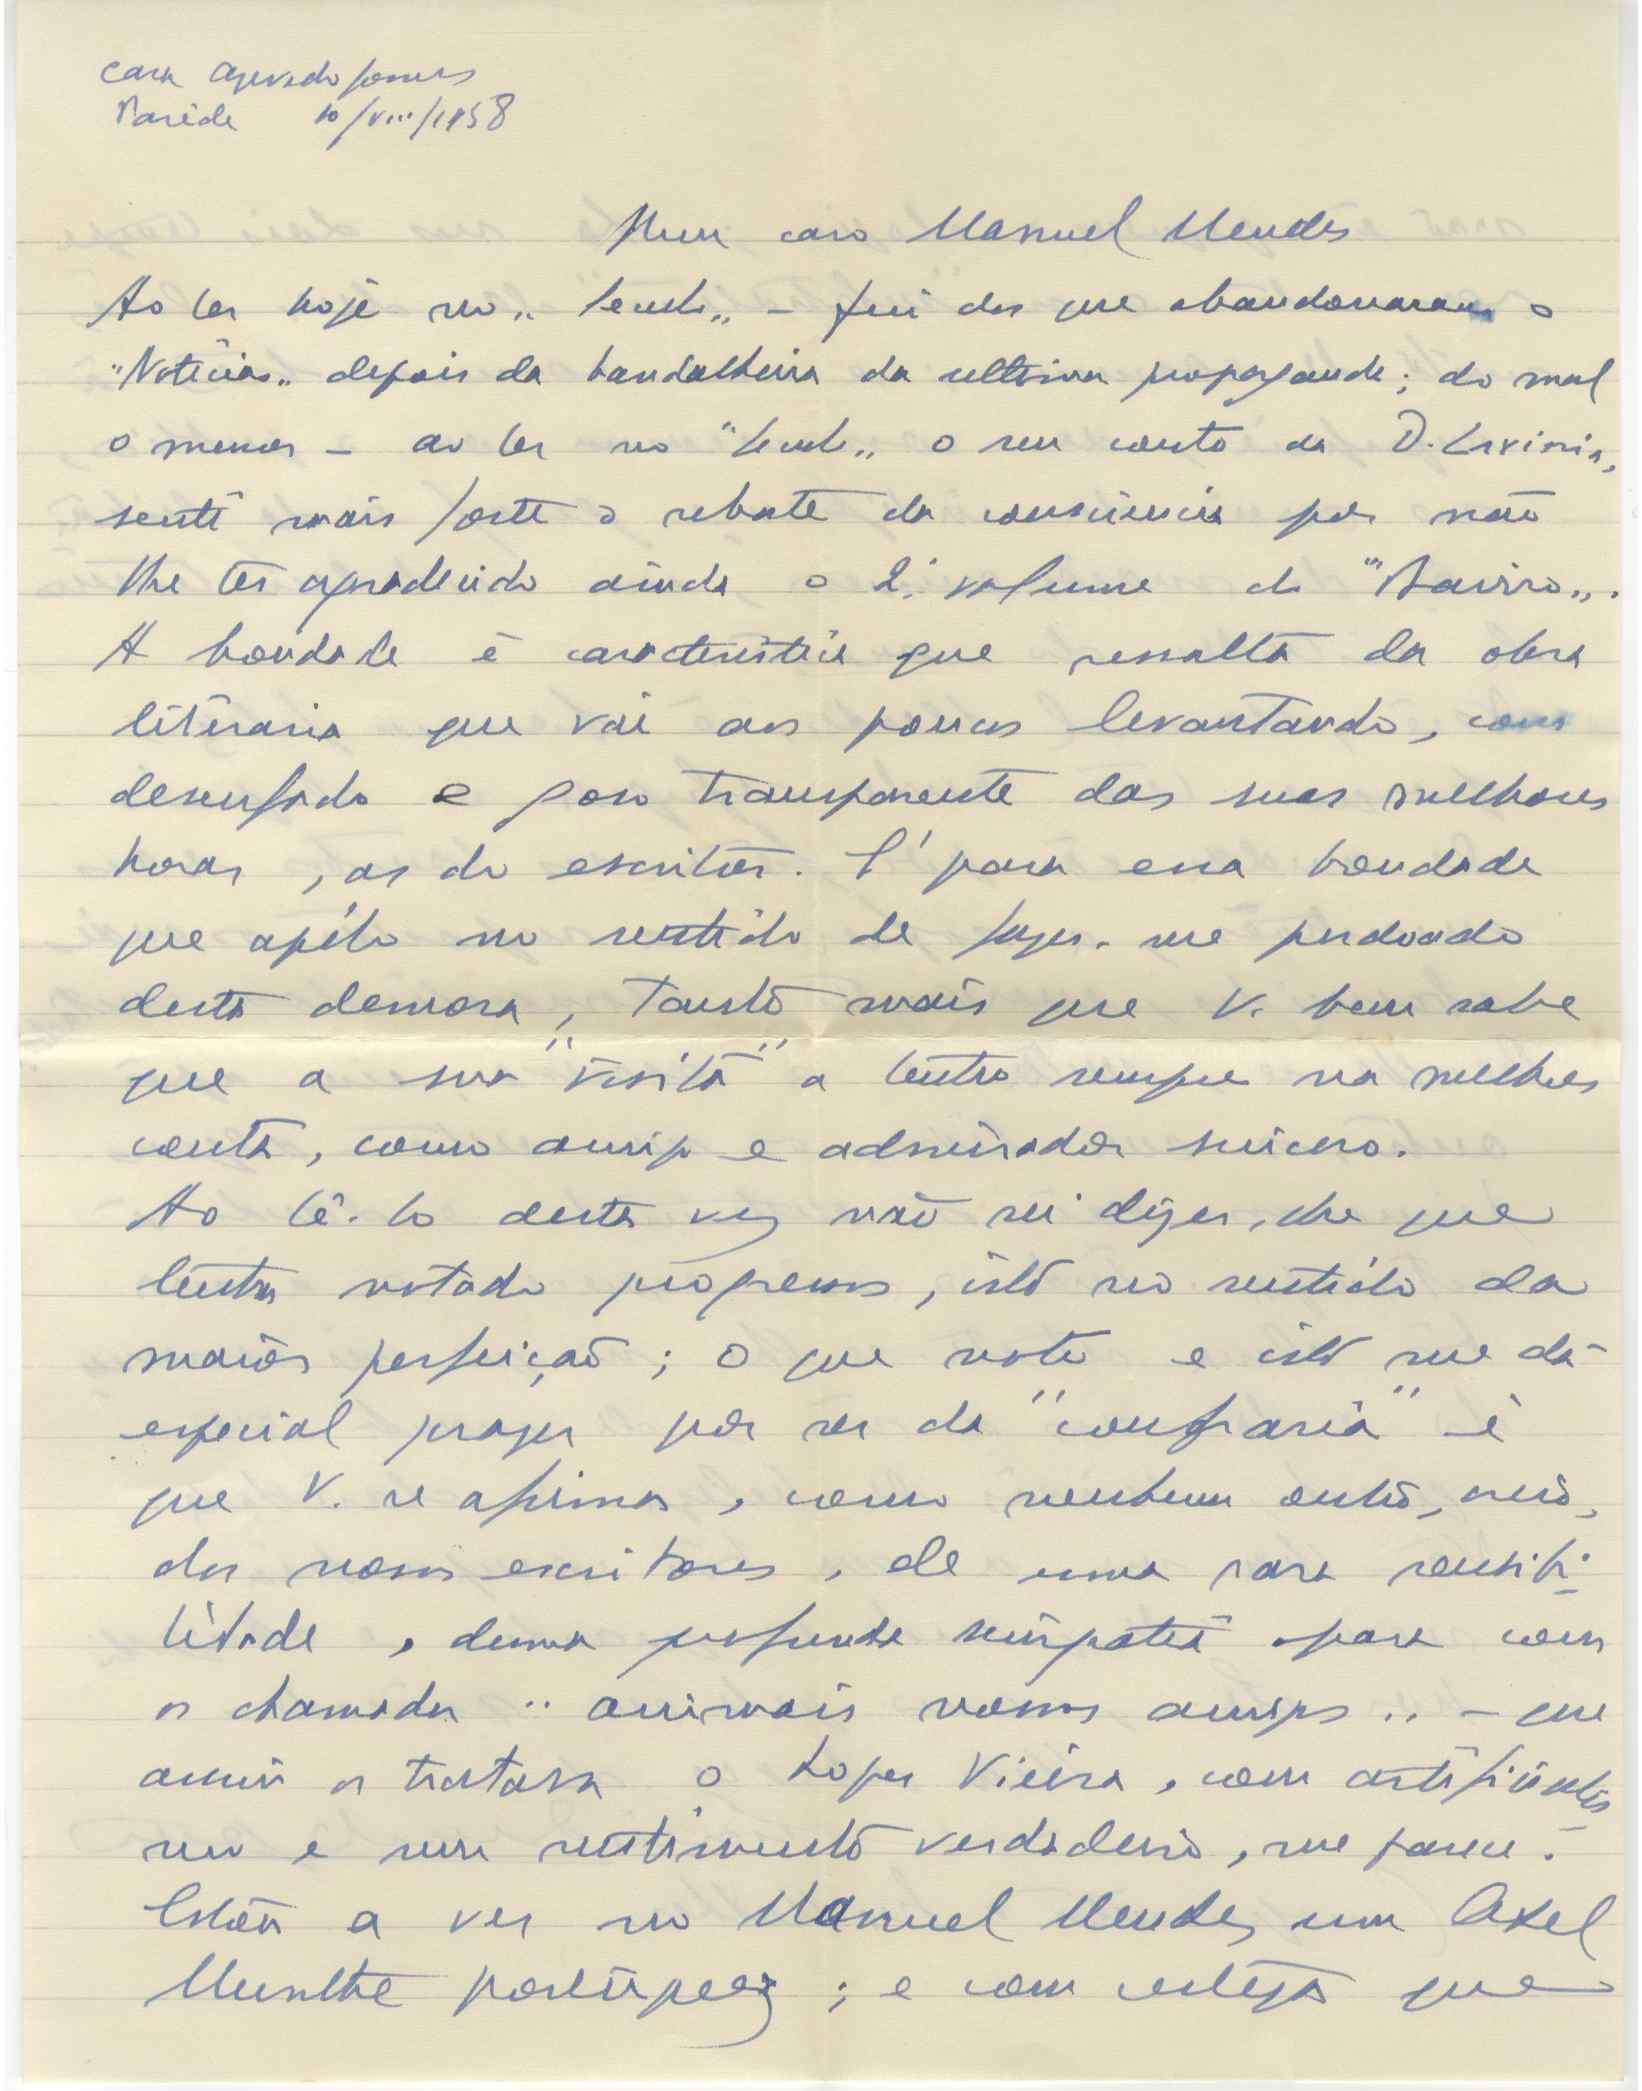 Casa Azevedo Gomes
Parêde 10/VIII/1958
Meu caro Manuel Mendes
Ao ler hoje no „ Seculo „ - fui dos que abandonaram o
"Noticias„ depois da bandalheira da ultima propaganda; do mal
o menor - ao ler no "Seculo„ o seu conto da D. Lavinia,
senti mais forte o rebate da consciencia por não
lhe ter agradecido ainda o 2º volume do "Bairro„.
A bondade é caracteristica que ressalta da obra
literaria que vai aos poucos levantando, com
desenfado e goso transparente das suas melhores
horas, as do escritor. É para essa bondade
que apélo no sentido de fazer-me perdoado
desta demora, tanto mais que V. bem sabe
que a sua "visita" a tenho sempre na melhor
conta, como amigo e admirador sincero.
Ao lê-lo desta vez não sei dizer-lhe que
tenha notado progressos, isto no sentido da
maior perfeição; o que noto e isto me dá
especial prazer por ser da "confraria" é
que V. se afirma, como nenhum outro, creio,
dos nossos escritores, de uma rara sensibi-
lidade, duma profunda simpatia para com
os chamados " animais nossos amigos " - que
assim os tratava o Lopes Vieira, com artificialis-
mo e sem sentimento verdadeiro, me parece.
Estou a ver no Manuel Mendes um Axel
Munthe portuguez; e com certeza que